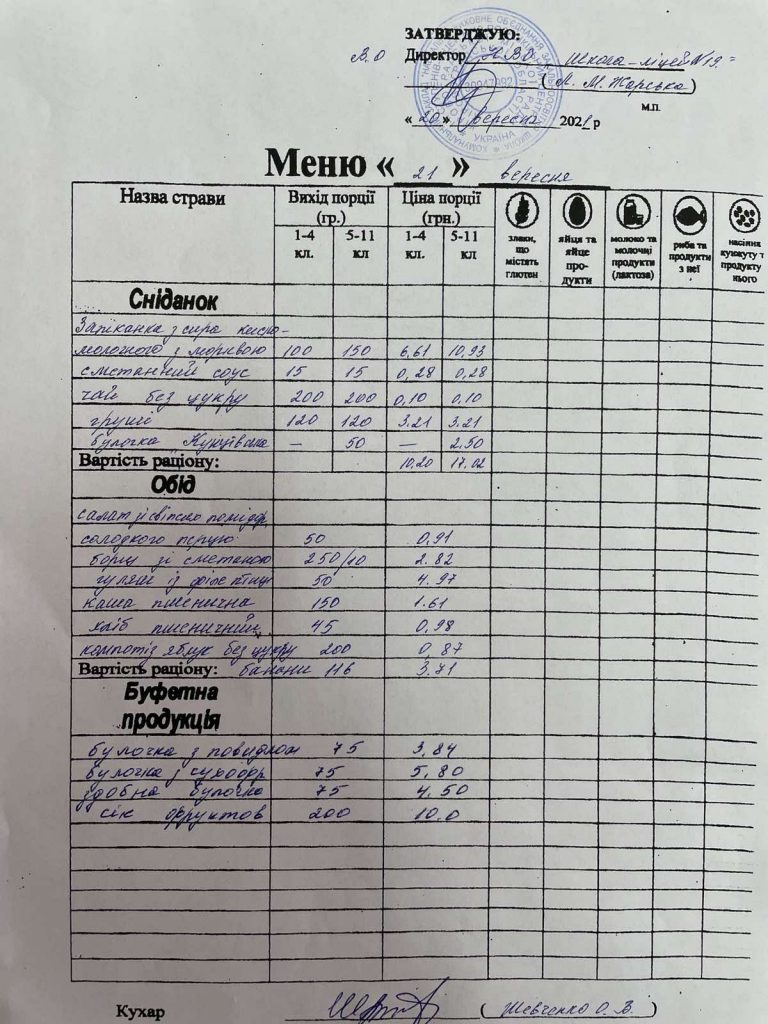 ЗАТВЕРДЖУЮ:
В.О Директор НВО Школа-ліцей №19
(Л. М. Жарська)
м.п.
«20» вересня 2021 р
УКРАЇНА
Меню « 21 » вересня
Назва страви Вихід порції (гр.) Ціна порції (грн.)
1-4 кл. 5-11 кл 1-4 кл. 5-11 кл
злаки, що містять глютен
яйця та яйце продукти
молоко та молочні продукти (лактоза)
риба та продукти з неї
насіння кунжуту т продукту нього
Сніданок
Запіканка з сира кисло-
молочного з морквою 100 150 6,61 10,93
сметанний соус 15 15 0,28 0,28
чай без цукру 200 200 0,10 0,10
груші 120 120 3.21 3.21
булочка Кунцівська — 50 — 2.50
Вартість раціону: 10.20 17.02
Обід
салат зі свіжого помідор
солодкого перцю 50 0,91
борщ зі сметаною 250/10 2.82
гуляш із філе птиці 50 4.97
каша пшенична 150 1.61
хліб пшеничний 45 0,98
компот із яблук без цукру 200 0,87
Вартість раціону: банани 116 3.71
Буфетна
продукція
булочка з повидлом 75 3,84
булочка з сухофр 75 5,80
здобна булочка 75 4.50
сік фруктов 200 10.0
Кухар (Шевченко О. В.)